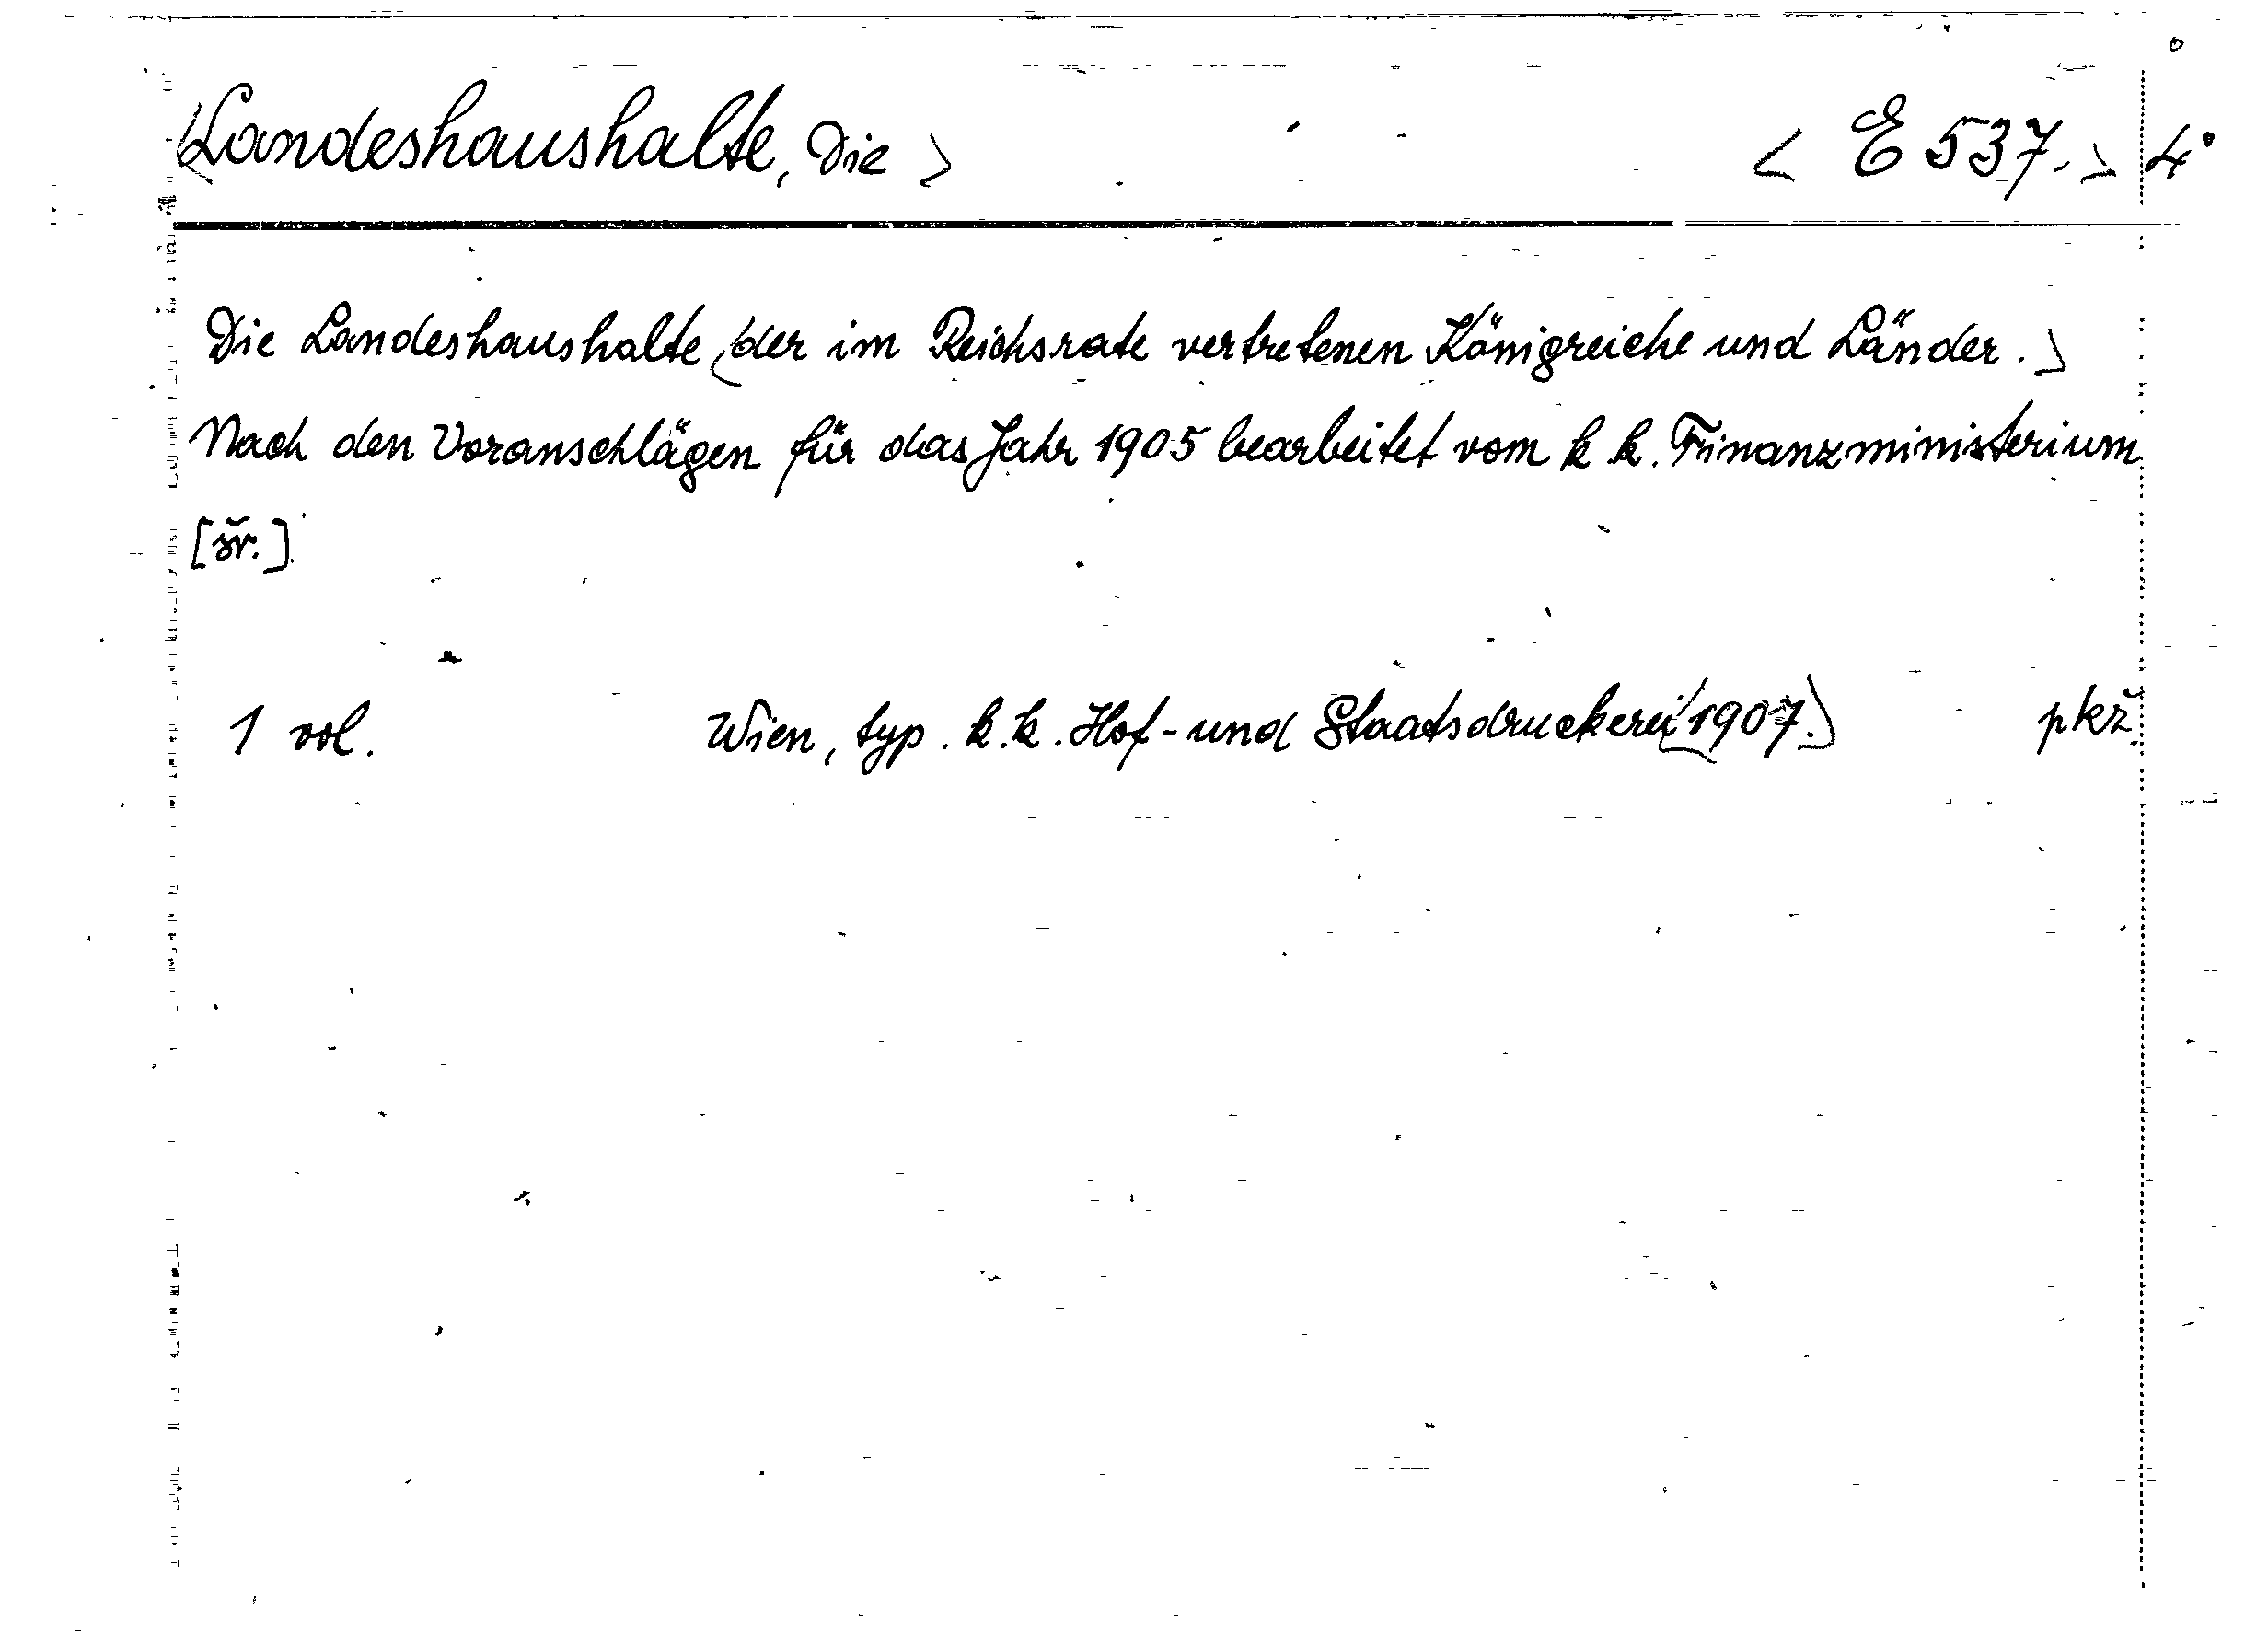 <Landeshaushalte, Die> <E 537.> 4°
Die Landeshaushalte <der im Reichsrate vertretenen Königreiche und Länder.>
Nach den Voranschlägen für das Jahr 1905 bearbeitet vom k k. Finanzministerium
1 vol. Wien, typ. k.k. Hof- und Staatsdruckerei <1907.> pkž.